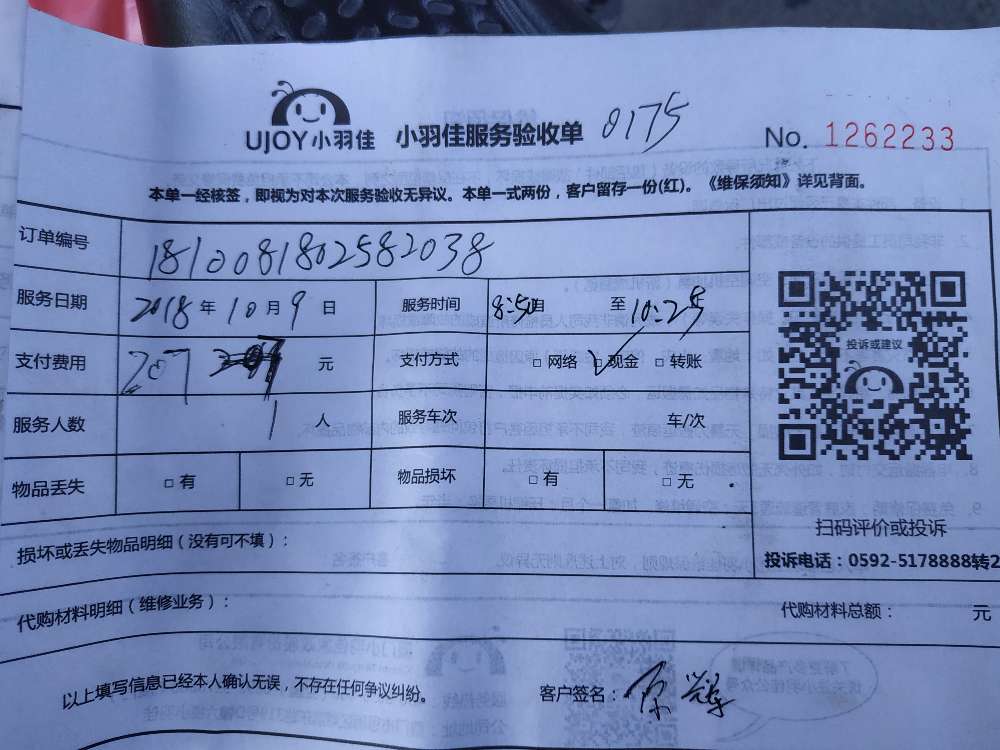 UJOY小羽佳 小羽佳服务验收单 0175 No. 1262233
本单一经核签，即视为对本次服务验收无异议。本单一式两份，客户留存一份(红)。《维保须知》详见背面。
订单编号 1810081802582038
服务日期 2018 年 10 月 9 日 服务时间 8:50 至 10:25
支付费用 207 元 支付方式 □ 网络 □ 现金 □ 转账
投诉或建议
服务人数 1 人 服务车次 车/次
物品丢失 □ 有 □ 无 物品损坏 □ 有 □ 无
扫码评价或投诉
损坏或丢失物品明细（没有可不填）：
投诉电话：0592-5178888转2
代购材料明细（维修业务）： 代购材料总额： 元
以上填写信息已经本人确认无误，不存在任何争议纠纷。 客户签名：